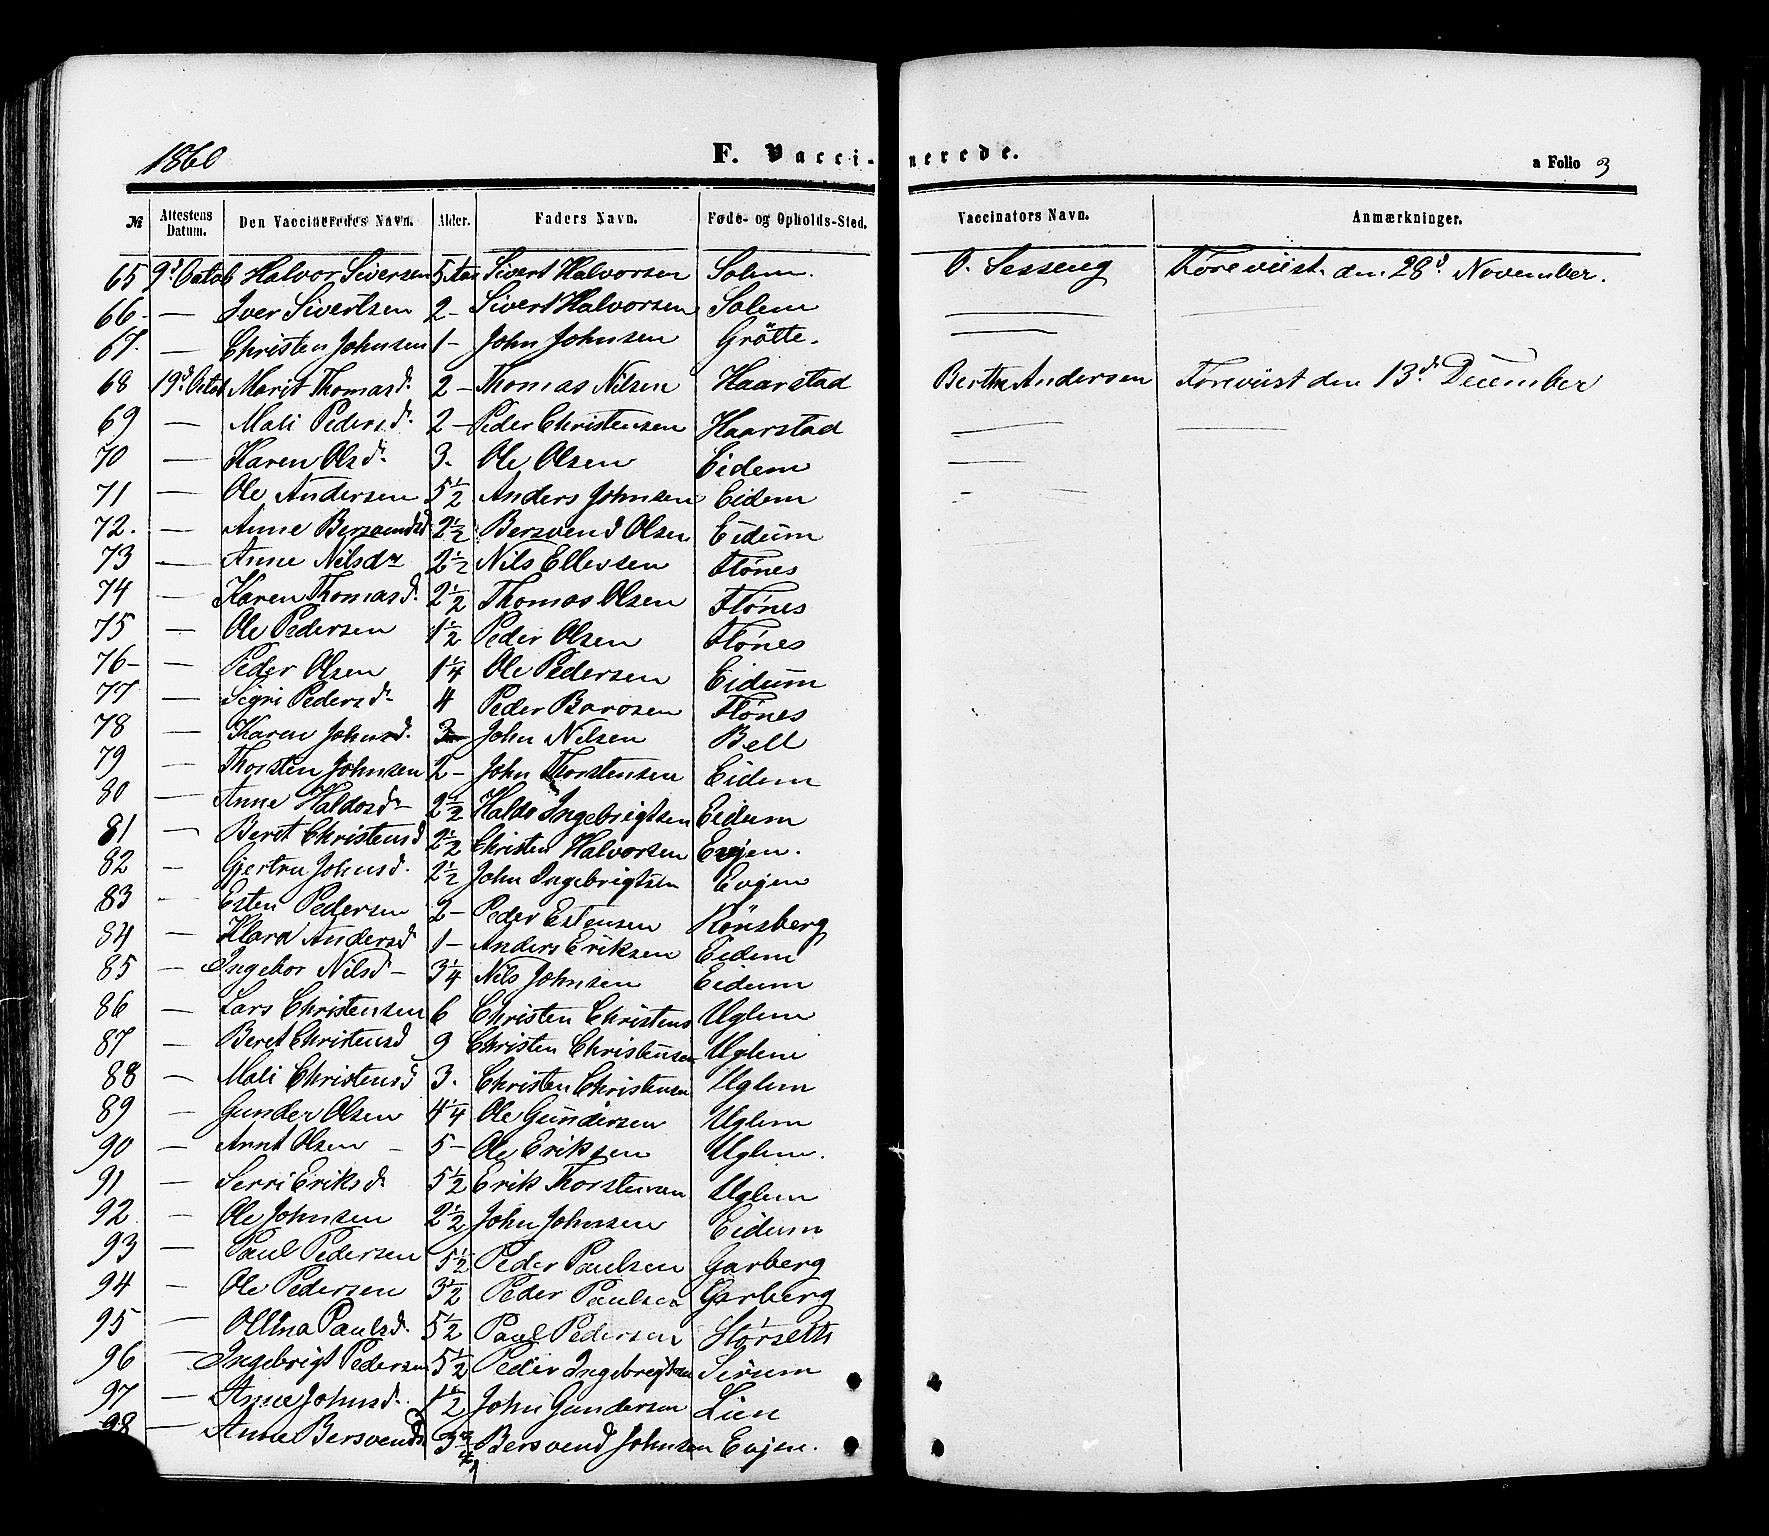 1860 F. Vaccinerede. a Folio 3
№ Attestens Datum. Den Vaccineredes Navn. Alder. Faders Navn. Føde- og Opholds-Sted. Vaccinators Navn. Anmærkninger.
65 9d Octob Halvor Siversen 5 Sivert Halvorsen Solem. O. Sesseng Foreviist den 28d November.
66 — Iver Sivertsen 2 - Sivert Halvorsen Solem — —
67. — Christen Johnsen 1 - John Johnsen Grøtte. —
68 19d Octob Marit Thomasd. 2 - Thomas Nilsen Haarstad Berthe Andersen Foreviist den 13d December
69 — Mali Pedersd. 2 - Peder Christensen Haarstad — —
70 — Karen Olsd. 3. Ole Olsen Eidem —
71 — Ole Andersen 5½ Anders Johnsen Eidem
72. — Anne Bersvendsd 2½ Bersvend Olsen Eidum
73 — Anne Nilsdr 2½ Nils Ellevsen Flønes
74 — Karen Thomasd. 2½ Thomas Olsen Flønes
75 — Ole Pedersen 1½ Peder Olsen Flønes
76 - — Peder Olsen 1¼ Ole Pedersen Eidum
77 — Sigri Pedersd. 4 Peder Barosen Flønes
78 — Karen Johnsd. 3 John Nilsen Bell
79 — Thorsten Johnsen 2 - John Thorstensen Eidem
80 — Anne Haldosd. 2½ Haldo Ingebrigtsen Eidum
81 — Beret Christensd 2½ Christen Halvorsen Evjen.
82 — Gjertru Johnsd. 2½ John Ingebrigtsen Evjen
83 - Esten Pedersen 2 - Peder Estensen Rønsberg
84 — Klara Andersd 1 - Anders Eriksen Eidem
85 — Ingebor Nilsd - 3¼ Nils Johnsen Eidum
86 — Lars Christensen 6 Christen Christens Uglem
87 — Beret Christensd 9 Christen Christensen Uglem
88 — Mali Christensd 3. Christen Christensen Uglem
89 — Gunder Olsen 4¼ Ole Gundersen Uglem
90 — Arnt Olsen - 5 - Ole Eriksen Uglem.
91 — Serri Eriksd. 5½ Erik Thorstensen Uglem
92. — Ole Johnsen 2½ John Johnsen Eidum
93 — Paul Pedersen 5½ Peder Paulsen Garberg
94 — Ole Pedersen 3½ Peder Paulsen Garberg
95 — Ollina Paulsd. 5½ Paul Pedersen Størseth
96 — Ingebrigt Pedersen 5½ Peder Ingebrigtsen Sirum
97 — Anne Johnsd. 1½ John Gundersen Lien
98 — Anne Bersvendsd 3¾ Bersvend Johnsen Evjen.